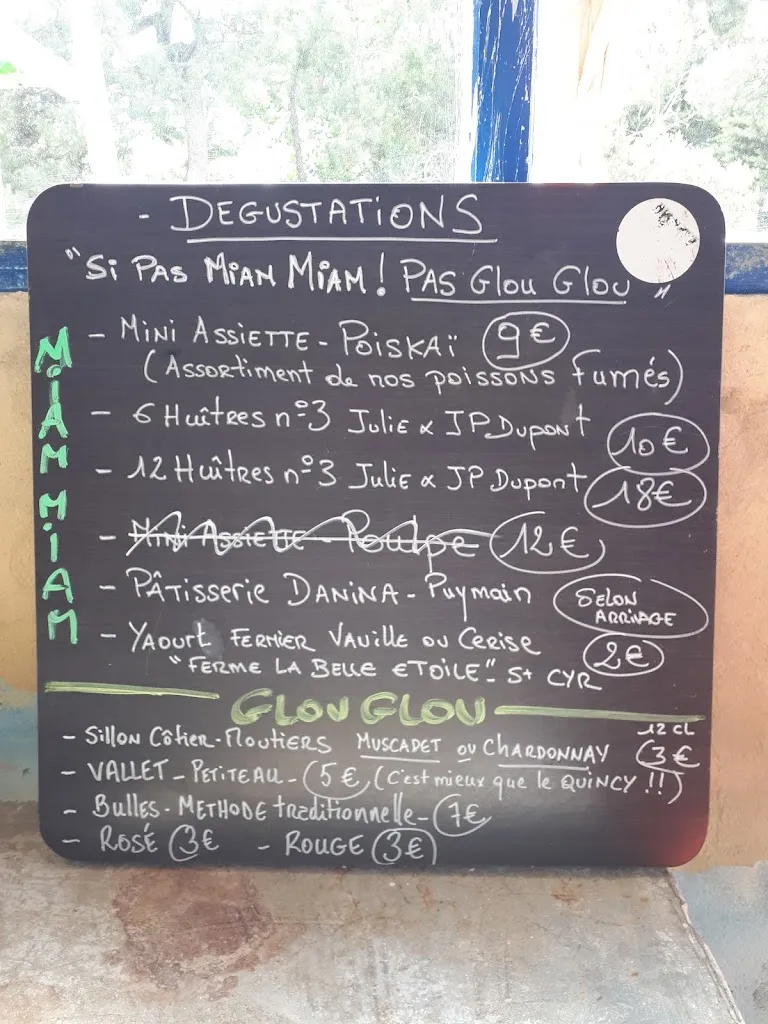 - DEGUSTATiONS
"Si PAS MiAM MiAM! PAS Glou Glou"
MiAM MiAM
- MiNi ASSiETTE - POiSKAï 9€
(ASSORTiMENT de nos poissons fumés)
- 6 Huîtres n°3 Julie & JP Dupont 10€
- 12 Huîtres n°3 Julie & JP Dupont 18€
- Mini Assiette - Poulpe 12€
- PÂtisserie DANiNA - Puymain SELON ARRiVAGE
- YAourt FERMiER VANille ou CERise 2€
"FERME LA BELLE ETOILE" - St CYR
GLOU GLOU
12 cl
- Sillon Côtier - Moutiers MUSCADET ou CHARDONNAY 3€
- VALLET - PETiTEAU - 5€ (C'est mieux que le QUINCY !!)
- Bulles - METHODE traditionnelle - 7€
- ROSÉ 3€ - ROUGE 3€